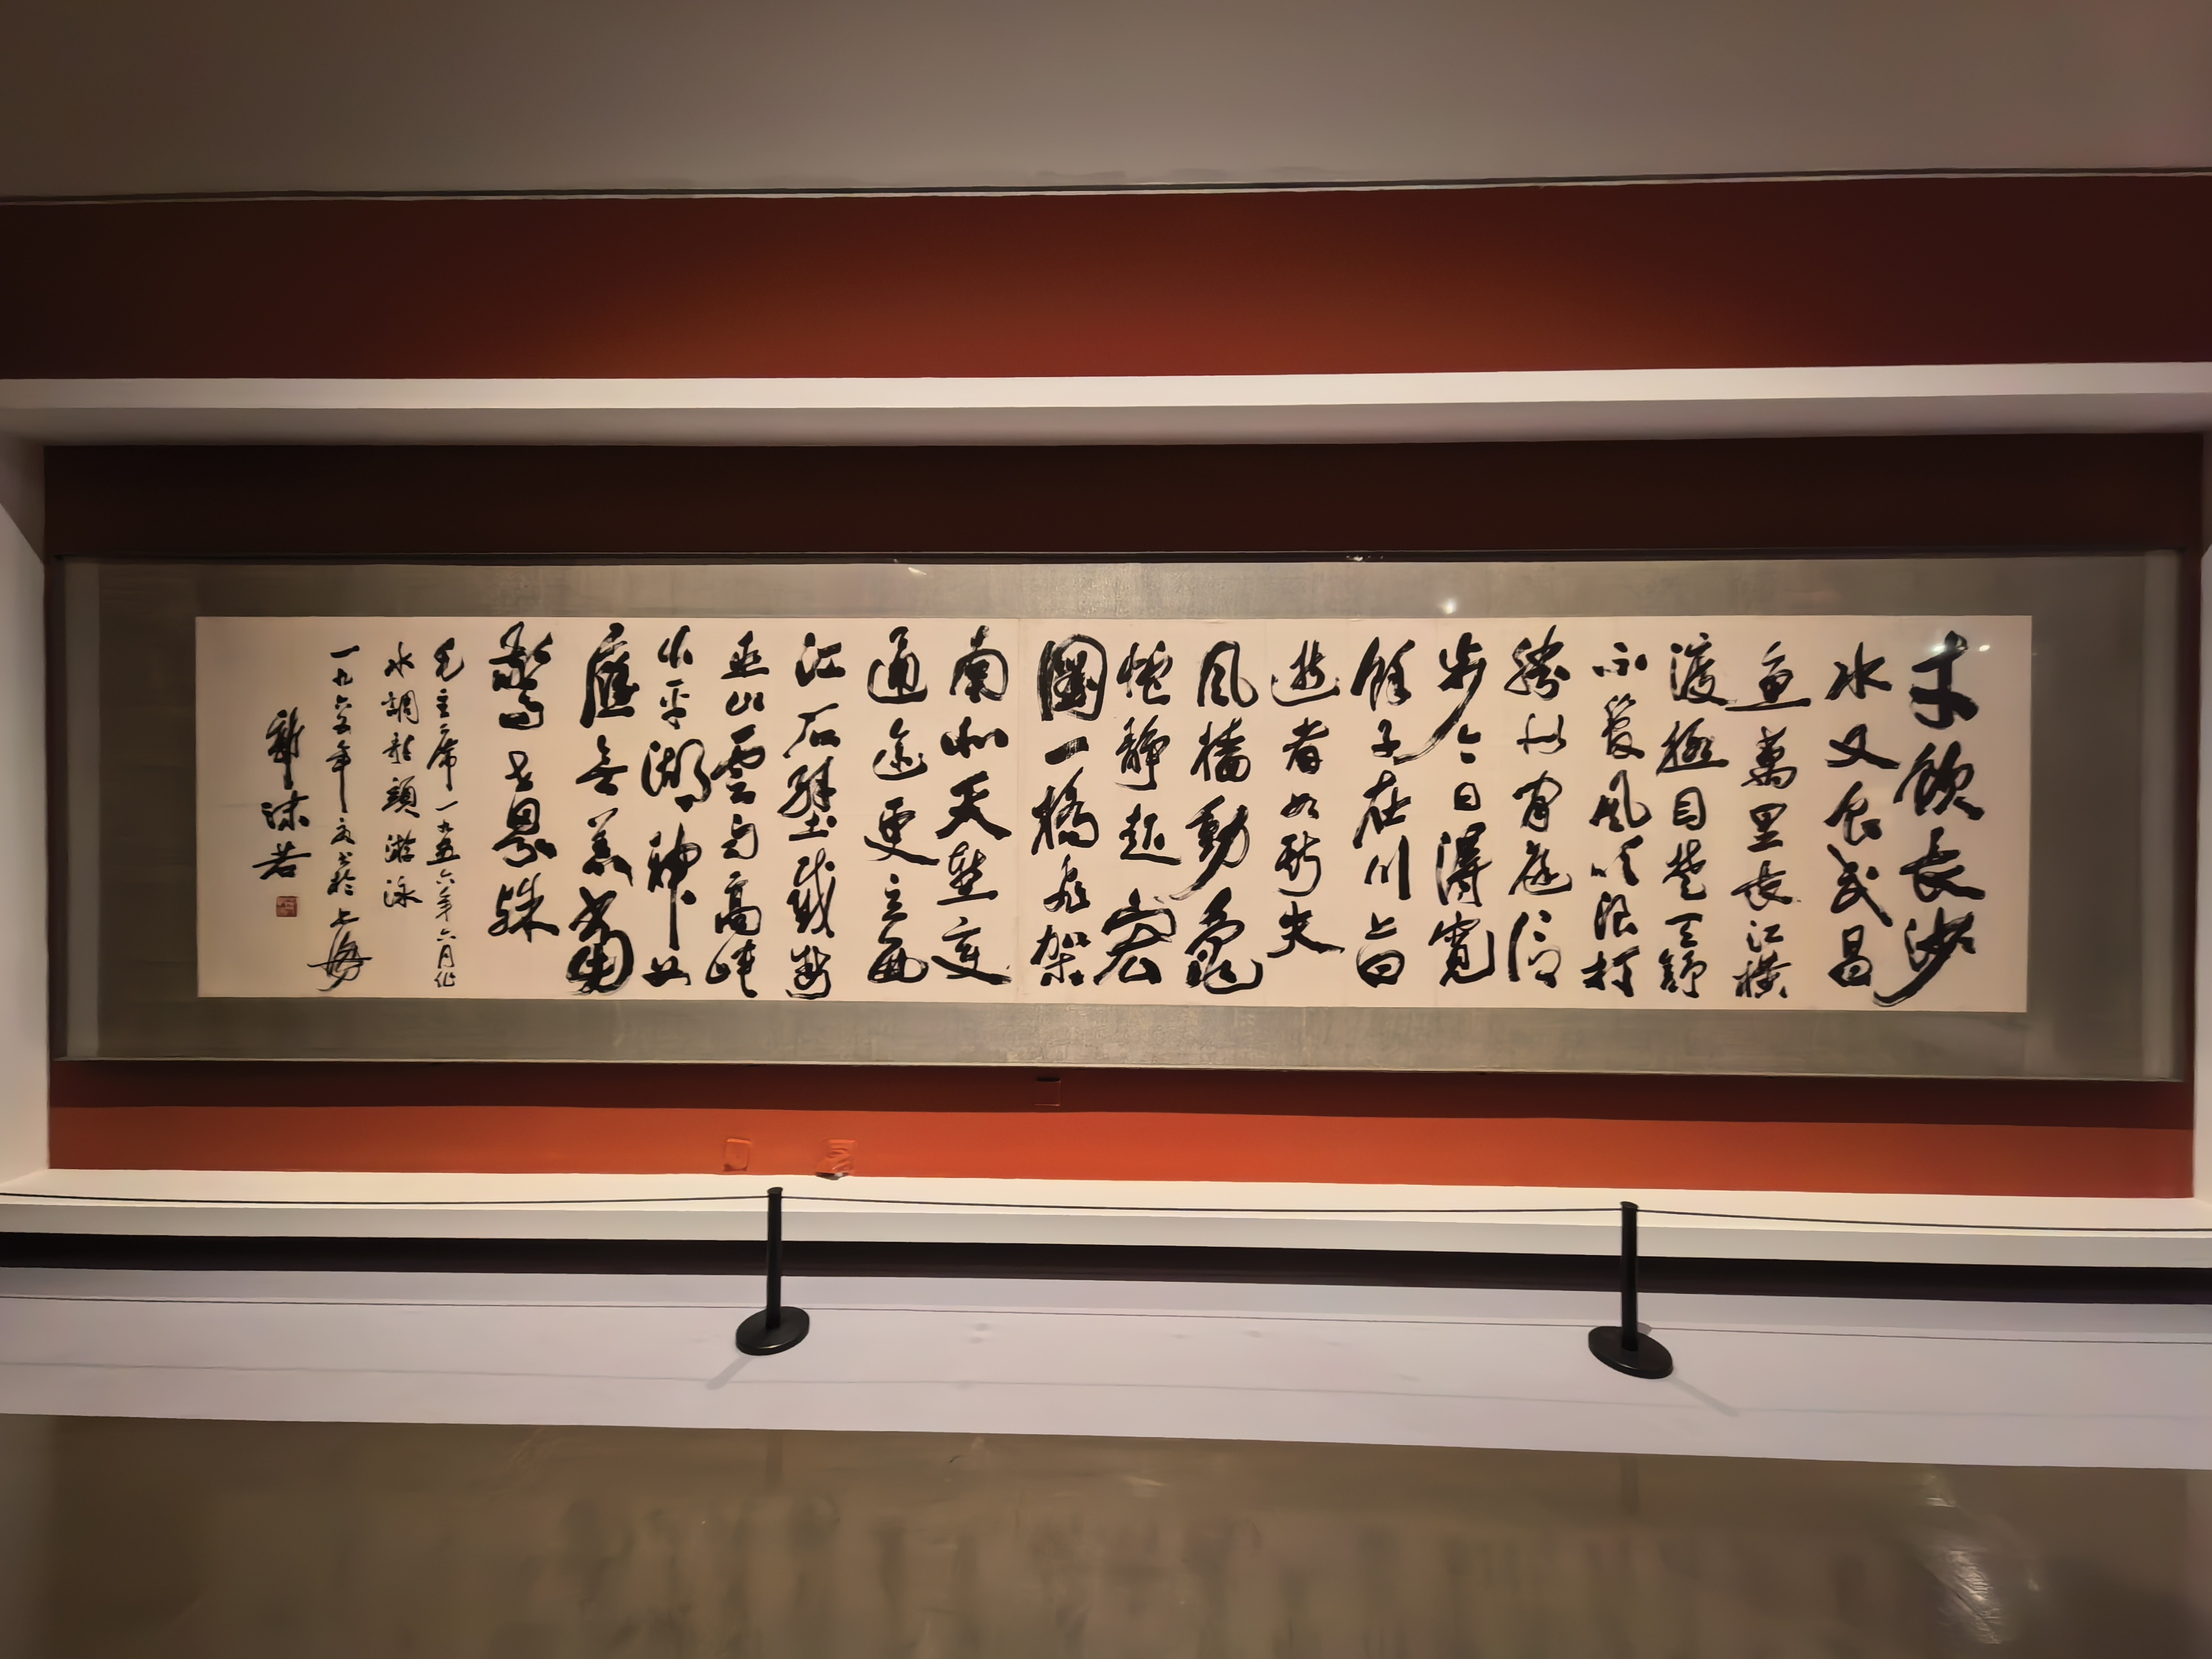 才飲長沙
水又食武昌
魚萬里長江橫
渡極目楚天舒
不管風吹浪打
勝似閒庭信
步今日得寬
餘子在川上曰
逝者如斯夫
風檣動龜
蛇靜起宏
圖一橋飛架
南北天塹變
通途更立西
江石壁截斷
巫山雲雨高峽
出平湖神女
應無恙當
驚世界殊
毛主席一九五六年六月作
水調歌頭游泳
一九六五年夏書於上海
郭沫若